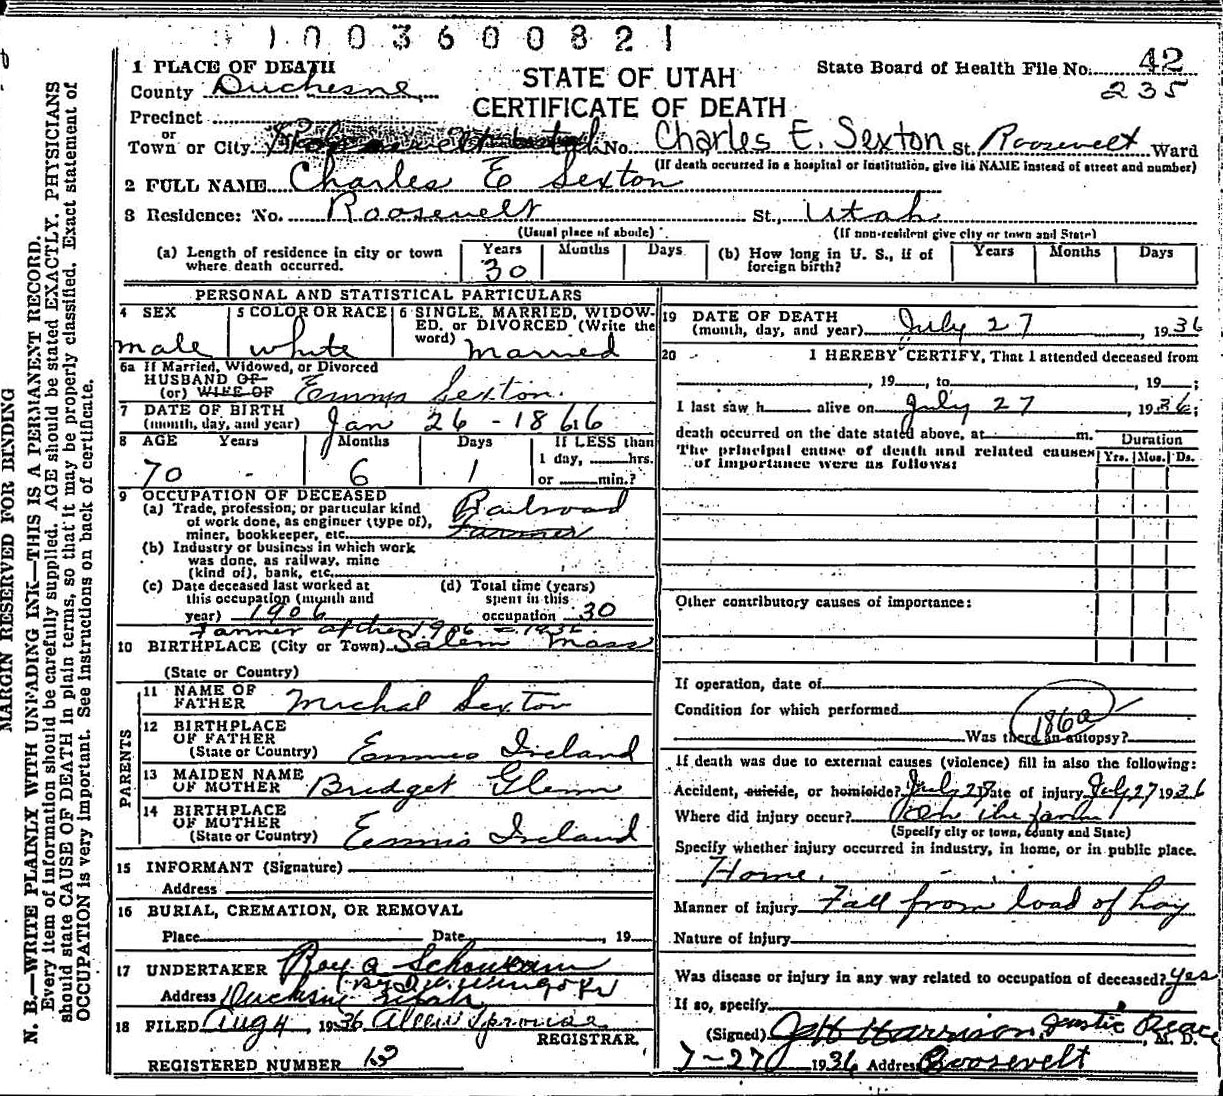 1003600821
1 PLACE OF DEATH
STATE OF UTAH
CERTIFICATE OF DEATH
State Board of Health File No. 42
235
County Duchesne
Precinct
or
Town or City No. Charles E. Sexton St. Roosevelt Ward
(If death occurred in a hospital or institution, give its NAME instead of street and number)
2 FULL NAME Charles E Sexton
3 Residence: No. Roosevelt St., Utah
(Usual place of abode) (If non-resident give city or town and State)
(a) Length of residence in city or town where death occurred. Years 30 Months Days
(b) How long in U. S., if of foreign birth? Years Months Days
PERSONAL AND STATISTICAL PARTICULARS
4 SEX male
5 COLOR OR RACE white
6 SINGLE, MARRIED, WIDOWED, or DIVORCED (Write the word) Married
6a If Married, Widowed, or Divorced
HUSBAND OF
(or) WIFE OF Emma Sexton
7 DATE OF BIRTH
(month, day, and year) Jan 26 - 1866
8 AGE Years Months Days If LESS than
1 day, hrs.
70 - 6 1 or min.?
9 OCCUPATION OF DECEASED
(a) Trade, profession, or particular kind
of work done, as engineer (type of),
miner, bookkeeper, etc. Railroad
Farmer
(b) Industry or business in which work
was done, as railway, mine
(kind of), bank, etc.
(c) Date deceased last worked at
this occupation (month and
year) 1906
(d) Total time (years)
spent in this
occupation 30
Farmer after 1906 - 1936
10 BIRTHPLACE (City or Town) Salem Mass
(State or Country)
PARENTS
11 NAME OF
FATHER Michal Sexton
12 BIRTHPLACE
OF FATHER
(State or Country) Ireland
13 MAIDEN NAME
OF MOTHER Bridget Glenn
14 BIRTHPLACE
OF MOTHER
(State or Country) Ireland
15 INFORMANT (Signature)
Address
16 BURIAL, CREMATION, OR REMOVAL
Place Date , 19
17 UNDERTAKER Roy A
Address Duchesne Utah
18 FILED Aug 4, 1936
REGISTRAR.
REGISTERED NUMBER 13
19 DATE OF DEATH
(month, day, and year) July 27, 1936
20 I HEREBY CERTIFY, That I attended deceased from
, 19 , to , 19 ;
I last saw h alive on July 27, 1936;
death occurred on the date stated above, at m.
The principal cause of death and related causes
of importance were as follows:
Duration
Yrs. Mos. Ds.
Other contributory causes of importance:
If operation, date of
Condition for which performed
186a
Was there an autopsy?
If death was due to external causes (violence) fill in also the following:
Accident, suicide, or homicide? July 27 Date of injury July 27 1936
Where did injury occur? On the farm
(Specify city or town, county and State)
Specify whether injury occurred in industry, in home, or in public place.
Home.
Manner of injury Fall from load of hay
Nature of injury
Was disease or injury in any way related to occupation of deceased? yes
If so, specify
(Signed) J H Harrison Justic Peace, M. D.
7-27 1936 Address Roosevelt
MARGIN RESERVED FOR BINDING
N. B.—WRITE PLAINLY WITH UNFADING INK—THIS IS A PERMANENT RECORD.
Every item of information should be carefully supplied. AGE should be stated EXACTLY. PHYSICIANS
should state CAUSE OF DEATH in plain terms, so that it may be properly classified. Exact statement of
OCCUPATION is very important. See instructions on back of certificate.